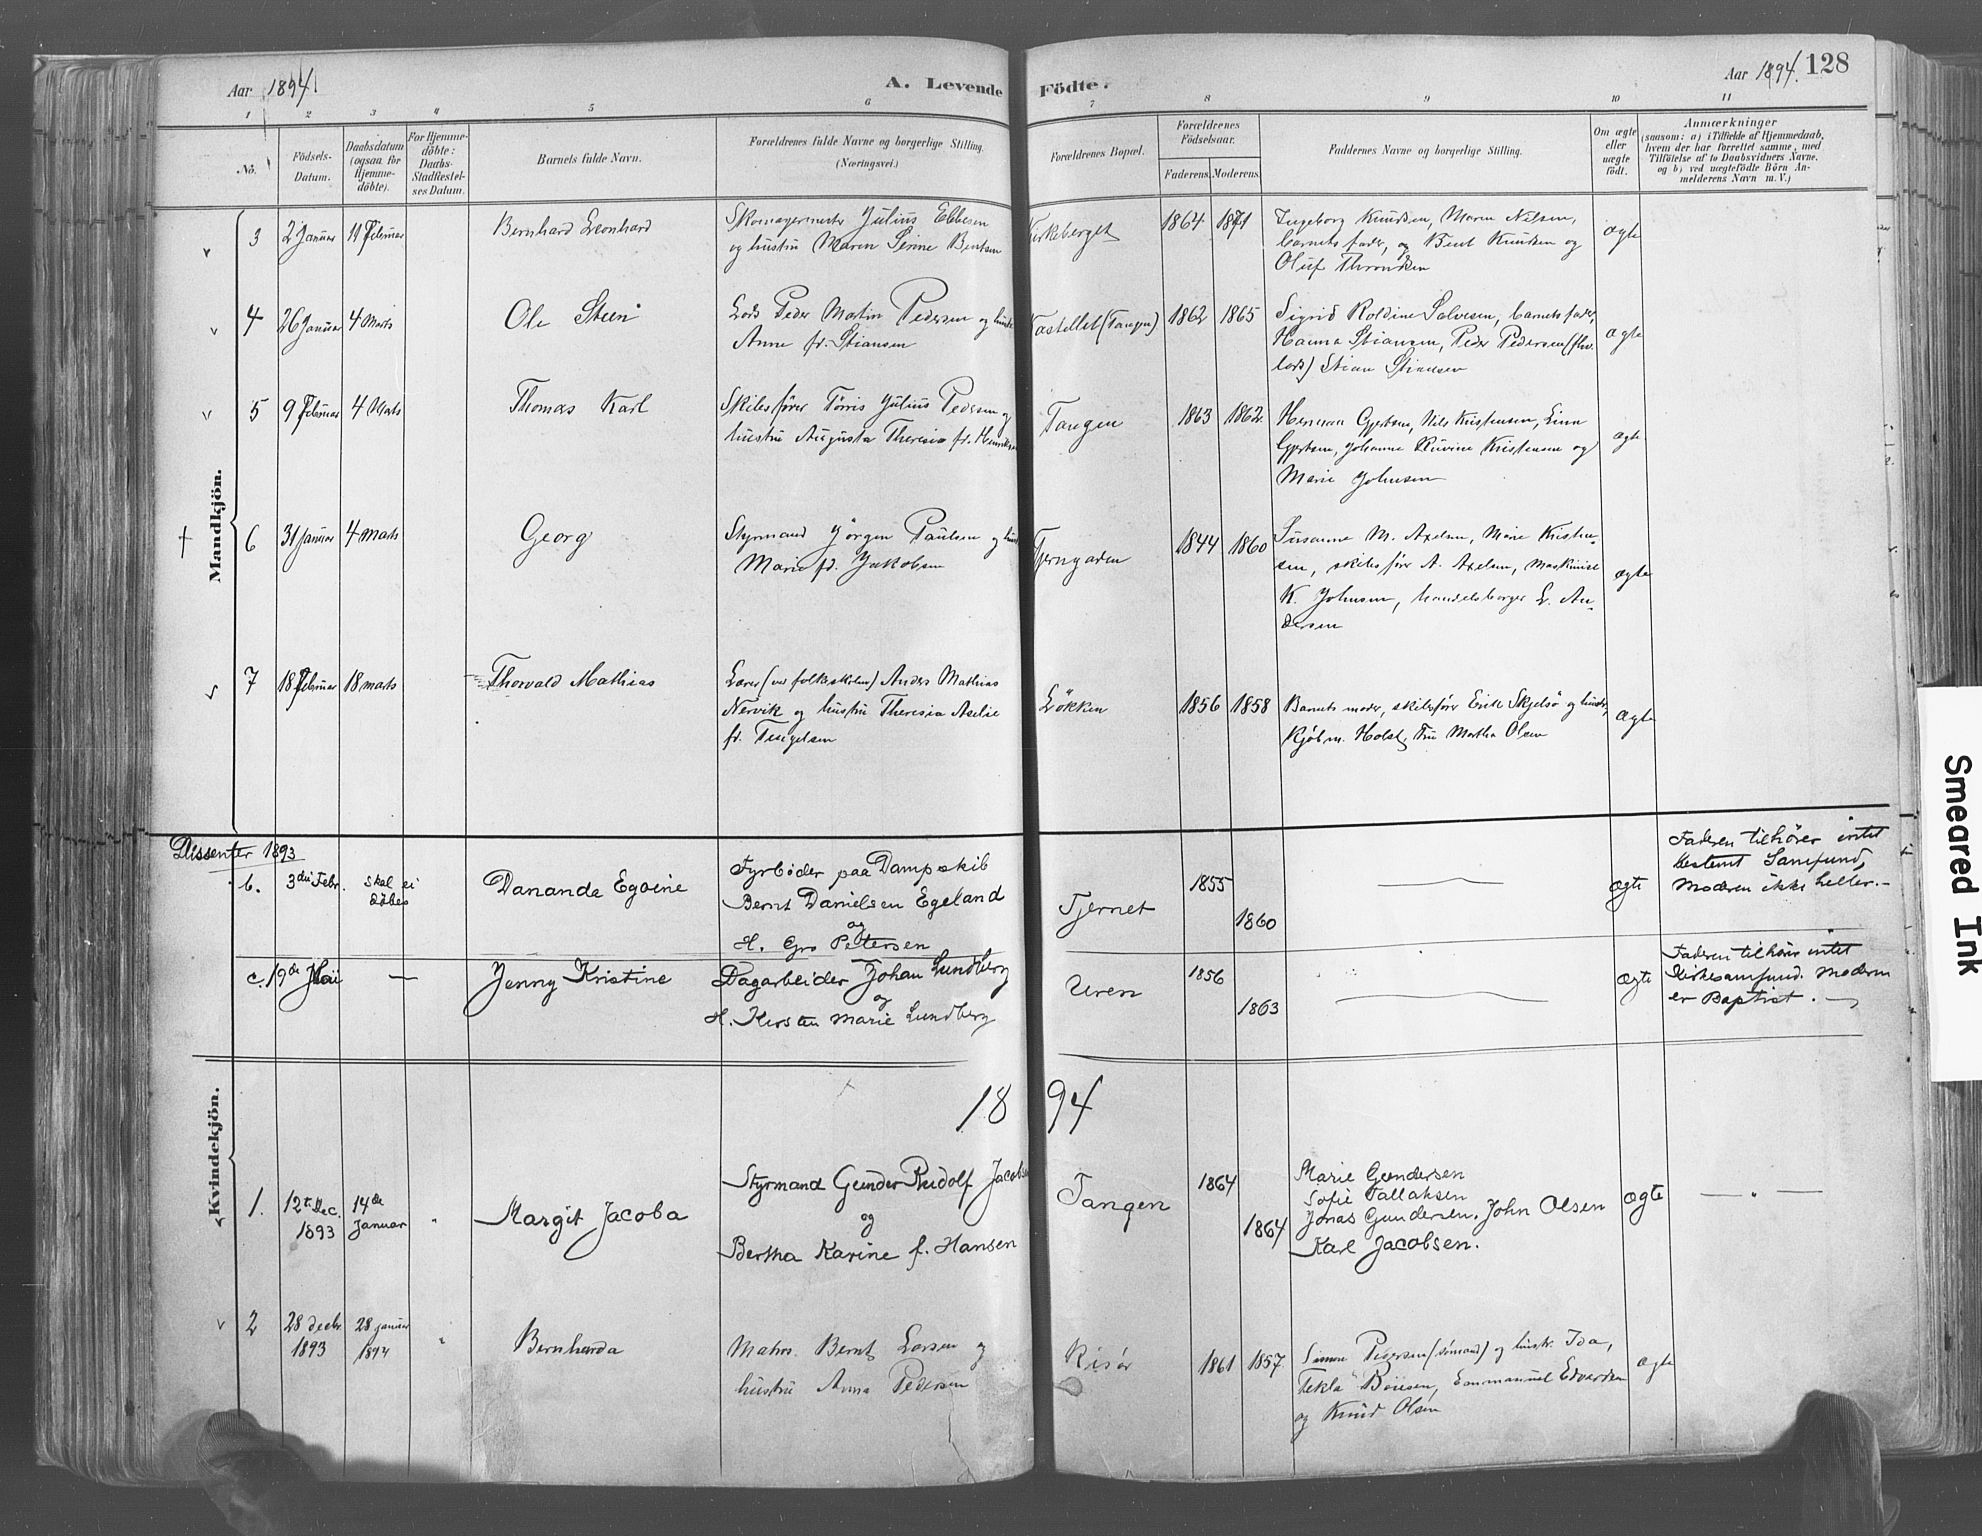 Aar 1894.
A. Levende Födte.
Aar 1894. 128
1 2 3 4 5 6 7 8 9 10 11
No.
Födsels-Datum.
Daabsdatum (ogsaa for Hjemmedöbte).
For Hjemmedöbte: Daabs-Stadfæstelses Datum.
Barnets fulde Navn.
Forældrenes fulde Navne og borgerlige Stilling. (Næringsvei.)
Forældrenes Bopæl.
Forældrenes Födselsaar.
Faderens. Moderens.
Faddernes Navne og borgerlige Stilling.
Om ægte eller uægte födt.
Anmærkninger (saasom: a) i Tilfælde af Hjemmedaab, hvem der har forrettet samme, med Tilföielse af to Daabsvidners Navne, og b) ved uægtefödte Börn Anmelderens Navn m. V.)
Mandkjön.
3 2 Januar 11 Februar Bernhard Leonhard
Skomagermester Julius Ebbesen
og hustru Maren Bentsen
Kirkeberget 1864 1871
Ingeborg Knudsen, Maren Nilsen,
barnets fader, og Bent Knudsen og
Oluf Throndsen
ægte
4 26 Januar 4 Marts Ole Steen
Lods Peder Martin Pedersen og hustru
Anne f. Stiansen
Kastellet (Tangen) 1862 1865
Sigrid Roldine Salvesen, barnets fader,
Hanna Stiansen, Peder Pedersen
lods) Stian Stiansen
ægte
5 9 Februar 4 Marts Thomas Karl
Skibsfører Tørris Julius Pedersen og
hustru Augusta Theresia f. Henriksen
Tangen 1863 1862
Herman Gjertsen, Nils Kristensen, Lina
Gjertsen, Johanne Kristensen og
Marie Johnsen
ægte
6 31 Januar 4 Marts Georg
Styrmand Jörgen Paulsen og hustru
Marie f. Jakobsen
Tjerngaden 1844 1860
Susanne M. Axelsen, Marie Kristen-
sen, skibsfører A. Axelsen, maskinist
K. Johnsen, handelsborger L. An-
dersen
ægte
7 18 Februar 18 Marts Thorvald Mathias
Lærer (ved folkeskolen) Anders Mathias
Nervik og hustru Theresia Axelie
f. Tengelsen
Løkken 1856 1858
Barnets moder, skibsfører Erik Skjelsö og hustru,
Kjøbm. Holst, Fru Martha Olsen
ægte
Dissenter 1893
b. 3die Febr. skal ei döbes Dananda Egoine
Fyrbøder paa Dampskib
Bernt Danielsen Egeland
og
H. Gro Petersen
Tjernet 1855 1860
ægte
Faderen tilhører intet
bestemt Samfund,
Moderen ikke heller.
c. 19de Mai — Jenny Kristine
Dagarbeider Johan Lundberg
og
H. Kirsten Marie Lundberg
Uren 1856 1863
ægte
Faderen tilhörer intet
Kirkesamfund. Moderen
er Baptist.
1894
Kvindekjön.
1. 12te Dec. 1893 14de Januar " Margit Jacoba
Styrmand Gunder Rudolf Jacobsen
og
Bertha Karine f. Hansen
Tangen 1864 1864
Marie Gundersen
Sofie Tallaksen
Jonas Gundersen. John Olsen
Karl Jacobsen.
ægte — " —
2 28 decbr. 1893 28 januar 1894 " Bernharda
Matros. Bernt Larsen og
hustru Anna Pedersen
Risør 1861 1857
Simon Pedersen (sömand) og hustr. Ida,
Tekla Boiesen, Emmanuel Edvardsen
og Knud Olsen
ægte
Smeared Ink